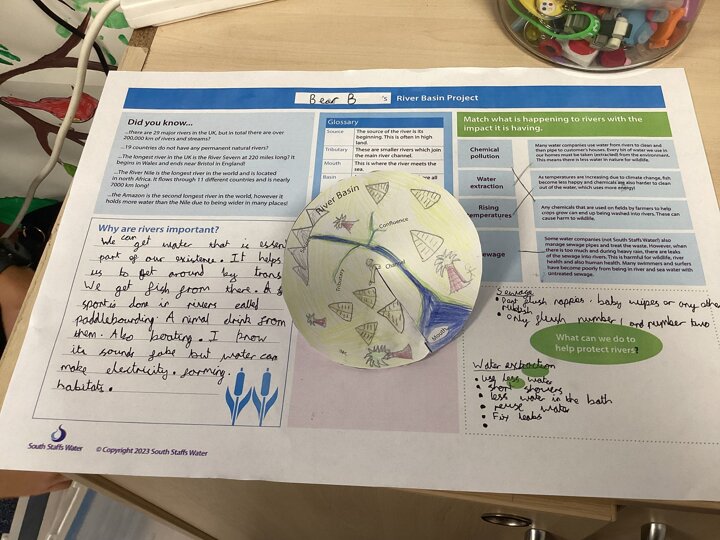 Bear B 's River Basin Project
Did you know...
...there are 29 major rivers in the UK, but in total there are over
200,000 km of rivers and streams?
...19 countries do not have any permanent natural rivers?
...the longest river in the UK is the River Severn at 220 miles long? It
begins in Wales and ends near Bristol in England!
...The River Nile is the longest river in the world and is located
in north Africa. It flows through 11 different countries and is nearly
7000 km long!
...the Amazon is the second longest river in the world, however it
holds more water than the Nile due to being wider in many places!
Why are rivers important?
We can get water that is essen
part of our existence. It helps
us to get around by trans
We get fish from there. A
sport is done in rivers called
paddleboarding. Animal drink from
them. Also boating. I know
its sounds fake but water can
make electricity. farming.
habitats.
South Staffs Water
© Copyright 2023 South Staffs Water
Glossary
Source
The source of the river is its
beginning. This is often in high
land.
Tributary
These are smaller rivers which join
the main river channel.
Mouth
This is where the river meets the
sea.
Basin
are all
River Basin
Confluence
Tributary
Mouth
Match what is happening to rivers with the
impact it is having.
Chemical
pollution
Water
extraction
Rising
temperatures
ewage
Many water companies use water from rivers to clean and
then pipe to customer's houses. Every bit of water we use in
our homes must be taken (extracted) from the environment.
This means there is less water in nature for wildlife.
As temperatures are increasing due to climate change, fish
become less happy and chemicals are also harder to clean
out of the water, which uses more energy!
Any chemicals that are used on fields by farmers to help
crops grow can end up being washed into rivers. These can
cause harm to wildlife.
Some water companies (not South Staffs Water!) also
manage sewage pipes and treat the waste. However, when
there is too much and during heavy rain, there are leaks
of the sewage into rivers. This is harmful for wildlife, river
health and also human health. Many swimmers and surfers
have become poorly from being in river and sea water with
untreated sewage.
Sewage
• Dont flush nappies, baby wipes or any other
rubbish
• Only flush number 1 and number two
What can we do to
help protect rivers?
Water extraction
• use less water
• short showers
• less water in the bath
• reuse water
• Fix leaks
•